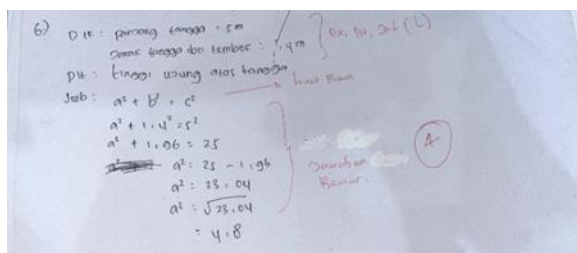 6) Dik : panjang tangga = 5m
Jarak tangga dari tembok : 1,4m
Dik, Dit, Job (L)
Dit : tinggi ujung atas tangga
Job : a² + b² = c²
a² + 1.4² = 5²
a² + 1,96 = 25
a² : 25 - 1,96
a² : 23,04
a² : √23,04
: 4,8
Jawaban
Benar.
4